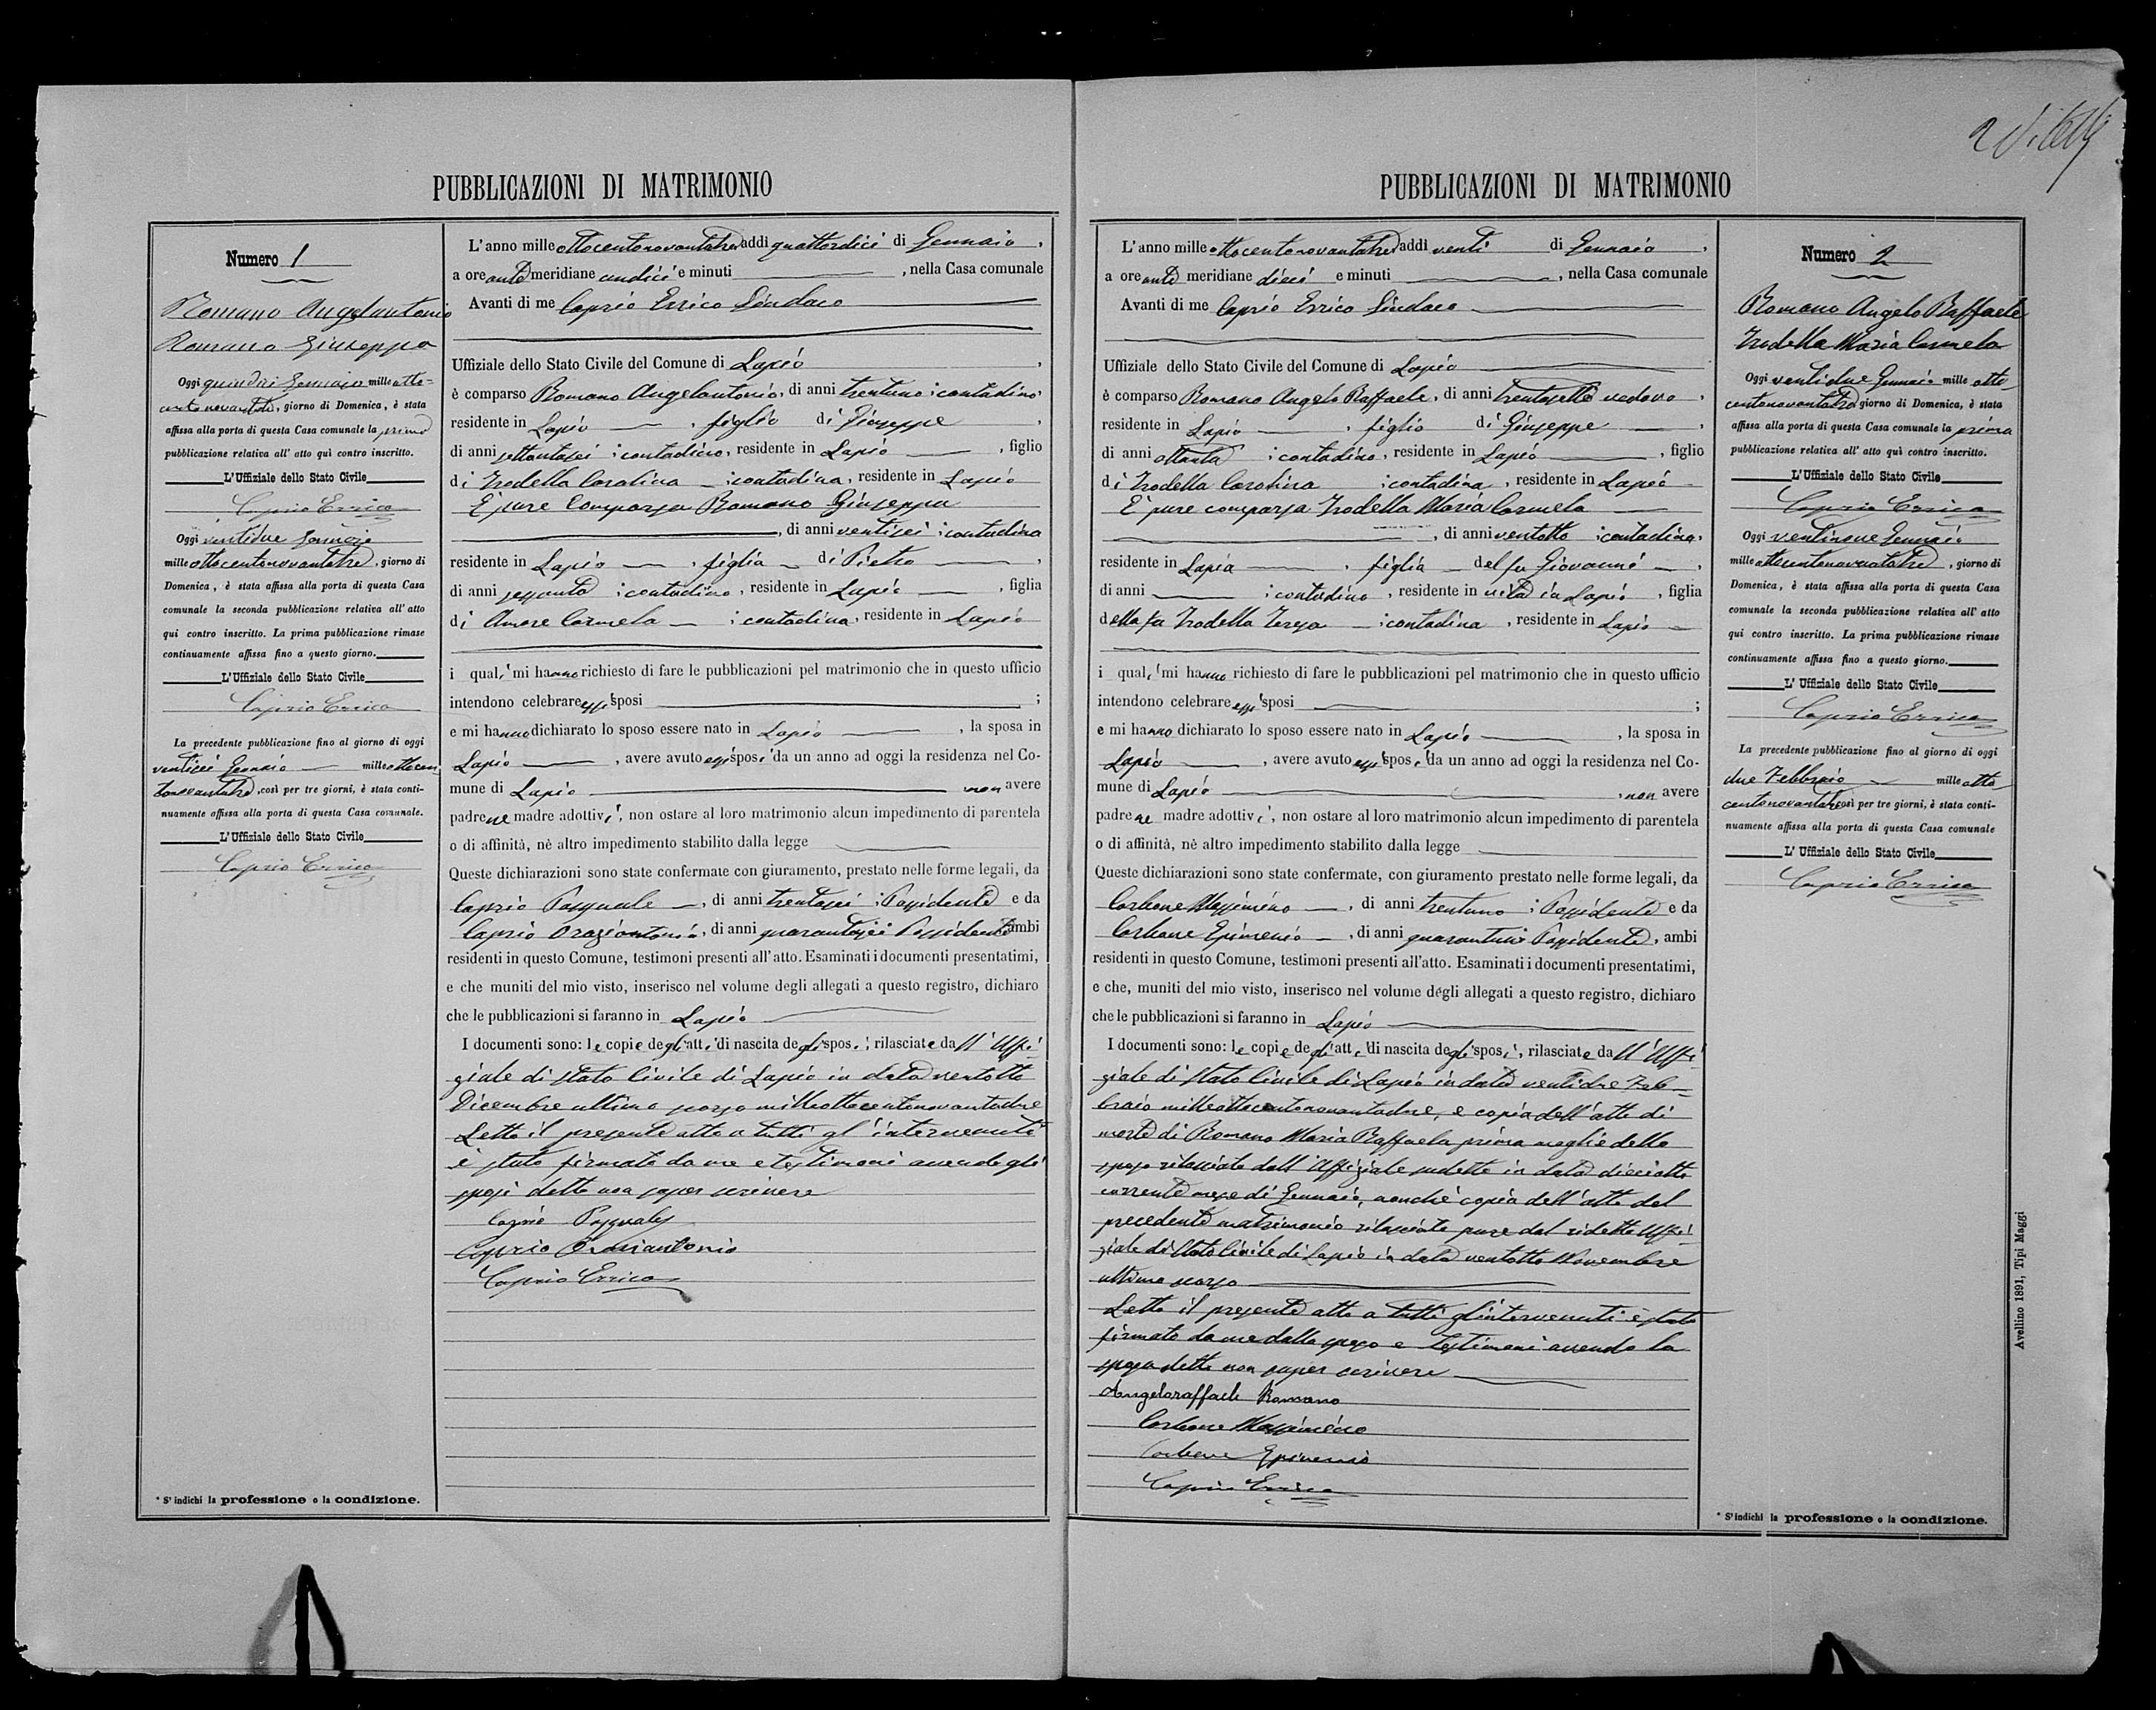 PUBBLICAZIONI DI MATRIMONIO
Numero 1
Romano Angelantonio
Romano Giuseppa
Oggi quindici Gennaio mille otto-
cento novantatre, giorno di Domenica, è stata
affissa alla porta di questa Casa comunale la prima
pubblicazione relativa all' atto qui contro inscritto.
L'Uffiziale dello Stato Civile
Caprio Errico
Oggi ventidue Gennaio
mille ottocentonovantatre, giorno di
Domenica, è stata affissa alla porta di questa Casa
comunale la seconda pubblicazione relativa all' atto
qui contro inscritto. La prima pubblicazione rimase
continuamente affissa fino a questo giorno.
L'Uffiziale dello Stato Civile
Caprio Errico
La precedente pubblicazione fino al giorno di oggi
ventisei Gennaio mille ottocen
tonovantatre, così per tre giorni, è stata conti-
nuamente affissa alla porta di questa Casa comunale.
L'Uffiziale dello Stato Civile
Caprio Errico
* S' indichi la professione o la condizione.
L'anno mille ottocentonovantatre addi quattordici di Gennaio,
a ore anti meridiane undici e minuti , nella Casa comunale
Avanti di me Caprio Errico Sindaco
Uffiziale dello Stato Civile del Comune di Lapio,
è comparso Romano Angelantonio, di anni trentuno contadino,
residente in Lapio, figlio di Giuseppe,
di anni settantasei contadino, residente in Lapio, figlio
di Trodella Carolina contadina, residente in Lapio
È pure comparsa Romano Giuseppa
, di anni ventisei contadina
residente in Lapio, figlia di Pietro,
di anni sessanta contadino, residente in Lapio, figlia
di Amore Carmela contadina, residente in Lapio
i quali mi hanno richiesto di fare le pubblicazioni pel matrimonio che in questo ufficio
intendono celebrare essi sposi ;
e mi hanno dichiarato lo sposo essere nato in Lapio, la sposa in
Lapio, avere avuto essi sposi da un anno ad oggi la residenza nel Co-
mune di Lapio non avere
padre ne madre adottivi, non ostare al loro matrimonio alcun impedimento di parentela
o di affinità, nè altro impedimento stabilito dalla legge
Queste dichiarazioni sono state confermate con giuramento, prestato nelle forme legali, da
Caprio Pasquale, di anni trentasei Possidente e da
Caprio Oraziantonio, di anni quarantasei Possidente ambi
residenti in questo Comune, testimoni presenti all'atto. Esaminati i documenti presentatimi,
e che muniti del mio visto, inserisco nel volume degli allegati a questo registro, dichiaro
che le pubblicazioni si faranno in Lapio
I documenti sono: le copie degli atti di nascita degli sposi, rilasciate dall'Uffi-
ziale di stato Civile di Lapio in data ventotto
Dicembre ultimo scorso milleottocentonovantadue
Letto il presente atto a tutti gl'intervenuti
è stato firmato da me e testimoni avendo gli
sposi detto non saper scrivere
Caprio Pasquale
Caprio Oraziantonio
Caprio Errico
PUBBLICAZIONI DI MATRIMONIO
L'anno mille ottocentonovantatre addi venti di Gennaio,
a ore anti meridiane dieci e minuti , nella Casa comunale
Avanti di me Caprio Errico Sindaco
Uffiziale dello Stato Civile del Comune di Lapio
è comparso Romano Angelo Raffaele, di anni trentasette vedovo,
residente in Lapio, figlio di Giuseppe,
di anni ottanta contadino, residente in Lapio, figlio
di Trodella Carolina contadina, residente in Lapio
È pure comparsa Trodella Maria Carmela
, di anni ventotto contadina,
residente in Lapio, figlia del fu Giovanni,
di anni contadino, residente in vita in Lapio, figlia
della fu Trodella Teresa contadina, residente in Lapio
i quali mi hanno richiesto di fare le pubblicazioni pel matrimonio che in questo ufficio
intendono celebrare essi sposi ;
e mi hanno dichiarato lo sposo essere nato in Lapio, la sposa in
Lapio, avere avuto essi sposi da un anno ad oggi la residenza nel Co-
mune di Lapio, non avere
padre ne madre adottivi, non ostare al loro matrimonio alcun impedimento di parentela
o di affinità, nè altro impedimento stabilito dalla legge
Queste dichiarazioni sono state confermate, con giuramento prestato nelle forme legali, da
Carbone Massimino, di anni trentuno Possidente e da
Carbone Epimenio, di anni quarantasei Possidente, ambi
residenti in questo Comune, testimoni presenti all'atto. Esaminati i documenti presentatimi,
e che, muniti del mio visto, inserisco nel volume degli allegati a questo registro, dichiaro
che le pubblicazioni si faranno in Lapio
I documenti sono: le copie degli atti di nascita degli sposi, rilasciate dall'Uffi-
ziale di stato Civile di Lapio in data ventidue Feb-
braio milleottocentonovantadue, e copia dell'atto di
morte di Romano Maria Raffaela prima moglie dello
sposo rilasciata dall'Uffiziale sudetto in data diciotto
corrente mese di Gennaio, nonché copia dell'atto del
precedente matrimonio rilasciato pure dal ridetto Uffi-
ziale di Stato Civile di Lapio in data ventotto Novembre
ultimo scorso
Letto il presente atto a tutti gl'intervenuti è stato
firmato da me dallo sposo e testimoni avendo la
sposa detto non saper scrivere
Angeloraffaele Romano
Carbone Massimino
Carbone Epimenio
Caprio Errico
Numero 2
Romano Angelo Raffaele
Trodella Maria Carmela
Oggi ventidue Gennaio mille otto
centonovantatre giorno di Domenica, è stata
affissa alla porta di questa Casa comunale la prima
pubblicazione relativa all' atto qui contro inscritto.
L'Uffiziale dello Stato Civile
Caprio Errico
Oggi ventinove Gennaio
mille ottocentonovantatre, giorno di
Domenica, è stata affissa alla porta di questa Casa
comunale la seconda pubblicazione relativa all' atto
qui contro inscritto. La prima pubblicazione rimase
continuamente affissa fino a questo giorno.
L' Uffiziale dello Stato Civile
Caprio Errico
La precedente pubblicazione fino al giorno di oggi
due Febbraio mille otto
centonovantatre così per tre giorni, è stata conti-
nuamente affissa alla porta di questa Casa comunale
L' Uffiziale dello Stato Civile
Caprio Errico
* S' indichi la professione o la condizione.
Avellino 1891, Tipi Maggi